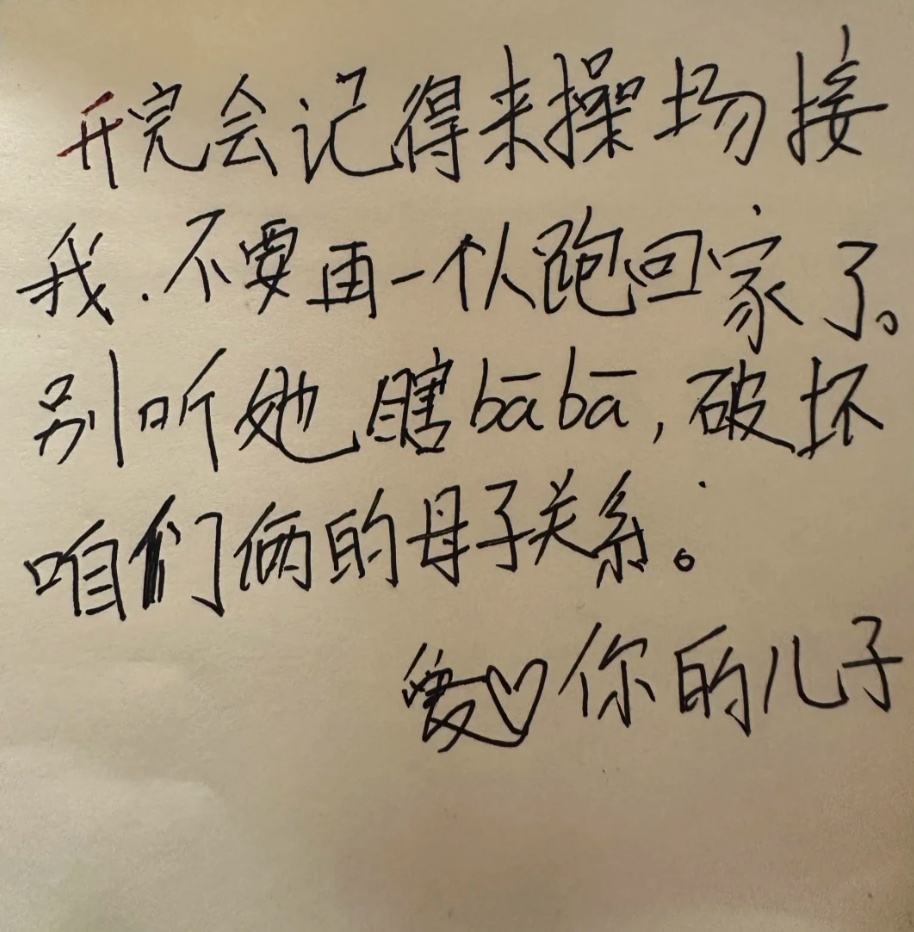 开完会记得来操场接
我.不要再一个人跑回家了。
别听她瞎bābā,破坏
咱们俩的母子关系。
爱♡你的儿子